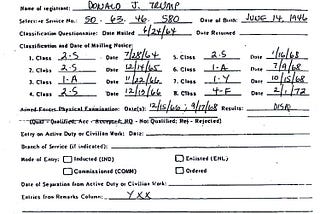 Name of registrant: DONALD J. TRUMP
Selective Service No. 50. 63. 46. 580 Date of Birth: JUNE 14, 1946
Classification Questionnaire: Date Mailed 6/24/64 Date Returned
Classification and Date of Mailing Notice:
1. Class 2-S Date 7/28/64 5. Class 2-S Date 1/16/68
2. Class 2-S Date 12/14/65 6. Class 1-A Date 7/9/68
3. Class 1-A Date 11/22/66 7. Class 1-Y Date 10/15/68
4. Class 2-S Date 12/13/66 8. Class 4-F Date 2/1/72
Armed Forces Physical Examination: Date(s): 12/15/66; 9/17/68 Results: DISQ
(Qual - Qualified, Acc - Accepted, NQ - Not Qualified; Rej - Rejected)
Entry on Active Duty or Civilian Work: Date:
Branch of Service (if indicated):
Mode of Entry: Inducted (IND) Enlisted (ENL)
Commissioned (COMM) Ordered
Date of Separation from Active Duty or Civilian Work:
Entries from Remarks Column: YXX